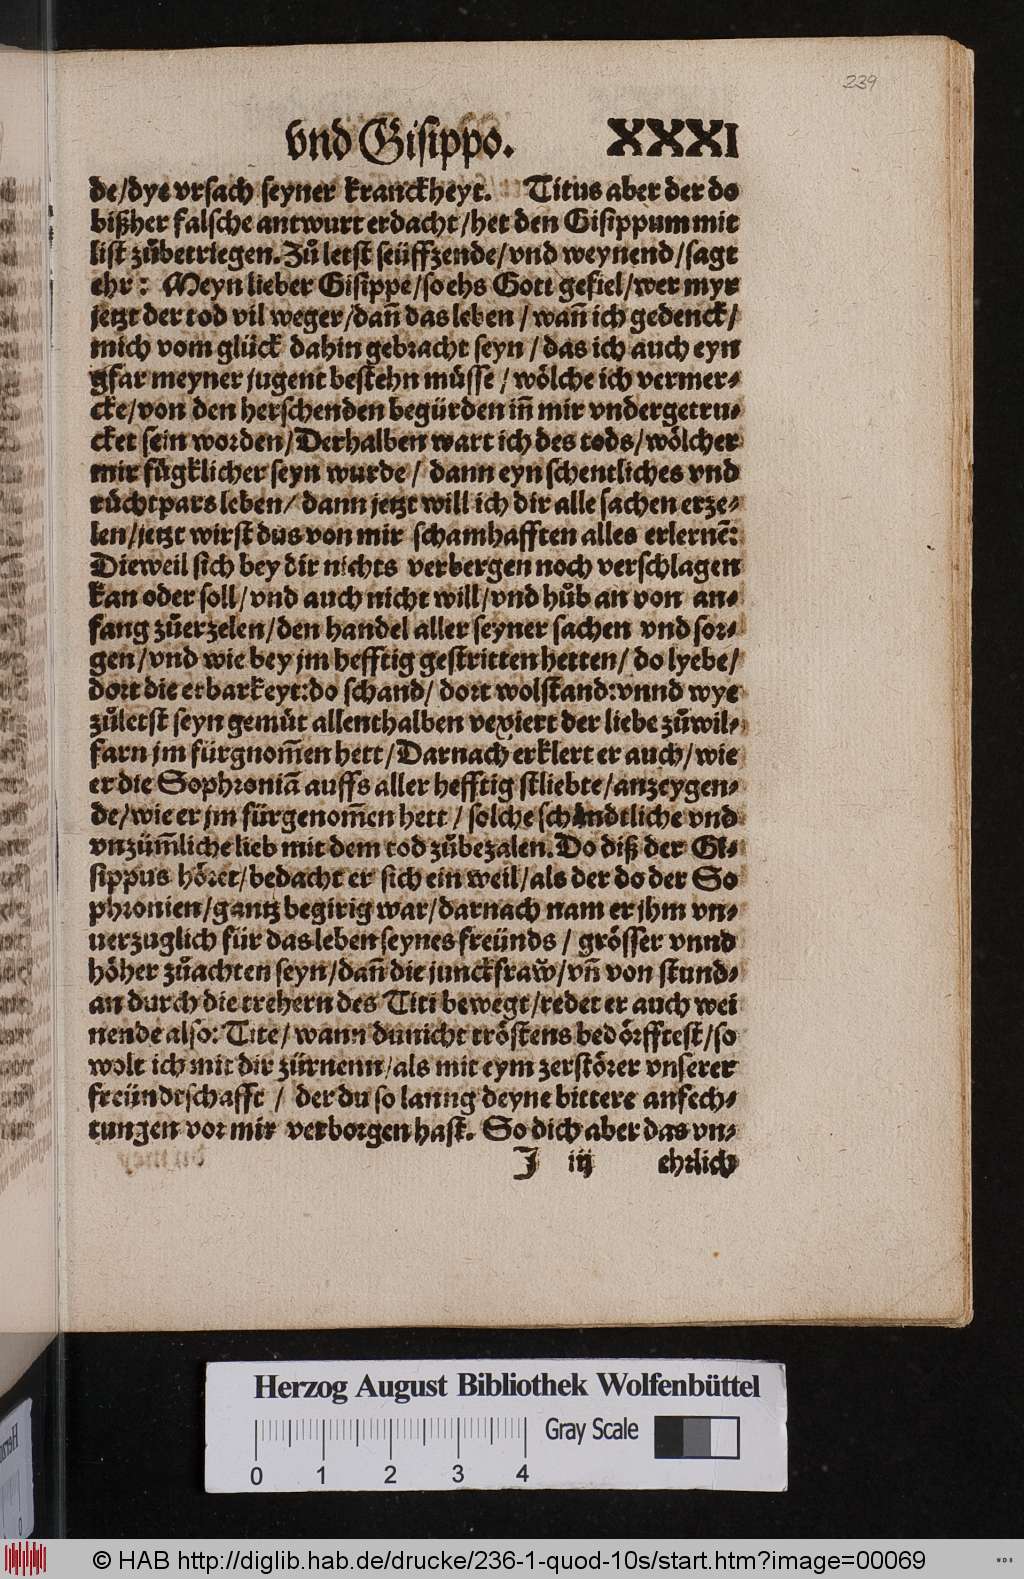 239
vnd Gisippo. XXXI
de/dye vrsach seyner kranckheyt. Titus aber der do
bißher falsche antwurt erdacht/het den Gisippum mit
list zůbetriegen. Zů letst seüffzende/vnd weynend/sagt
ehr: Meyn lieber Gisippe/so ehs Gott gefiel/wer myr
jetzt der tod vil weger/dañ das leben/wañ ich gedenck/
mich vom glück dahin gebracht seyn/das ich auch eyn
gfar meyner jugent bestehn müsse/wölche ich vermer-
cke/von den herschenden begürden iñ mir vndergetru-
cket sein worden/Derhalben wart ich des tods/wölcher
mir fügklicher seyn wurde/dann eyn schentliches vnd
rüchtpars leben/dann jetzt will ich dir alle sachen erze-
len/jetzt wirst dus von mir schamhafften alles erlernẽ:
Dieweil sich bey dir nichts verbergen noch verschlagen
kan oder soll/vnd auch nicht will/vnd hůb an von an-
fang zůerzelen/den handel aller seyner sachen vnd sor-
gen/vnd wie bey jm hefftig gestritten hetten/do lyebe/
dort die erbarkeyt:do schand/dort wolstand:vnnd wye
zůletst seyn gemüt allenthalben vexiert der liebe zůwil-
farn jm fürgnom̃en hett/Darnach erklert er auch/wie
er die Sophroniã auffs aller hefftigst liebte/anzeygen-
de/wie er jm fürgenom̃en hett/solche schandtliche vnd
vnzüm̃liche lieb mit dem tod zůbezalen. Do diß der Gi-
sippus höret/bedacht er sich ein weil/als der do der So
phronien/gantz begirig war/darnach nam er jhm vn-
uerzuglich für das leben seynes freünds/grösser vnnd
höher zůachten seyn/dañ die junckfraw̌/vñ von stund-
an durch die trehern des Titi bewegt/redet er auch wei
nende also: Tite/wann du nicht tröstens bedörfftest/so
wolt ich mit dir zürnenn/als mit eym zerstörer vnserer
freündtschafft/der du so lanng deyne bittere anfech-
tungen vor mir verborgen hast. So dich aber das vn-
J iij ehrlich
Herzog August Bibliothek Wolfenbüttel
Gray Scale
0 1 2 3 4
© HAB http://diglib.hab.de/drucke/236-1-quod-10s/start.htm?image=00069